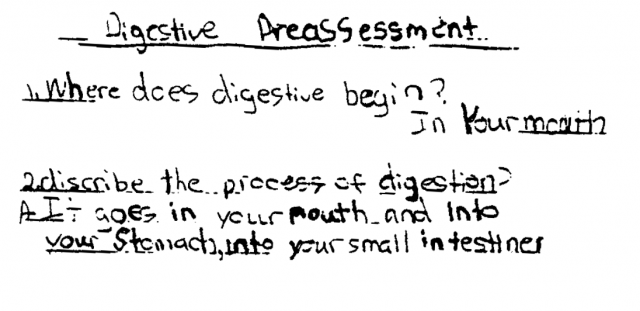 Digestive Preassessment
1. Where does digestive begin?
In Your mouth
2. discribe the process of digestion?
A. It goes in your mouth and into
your stomach, into your small intestines